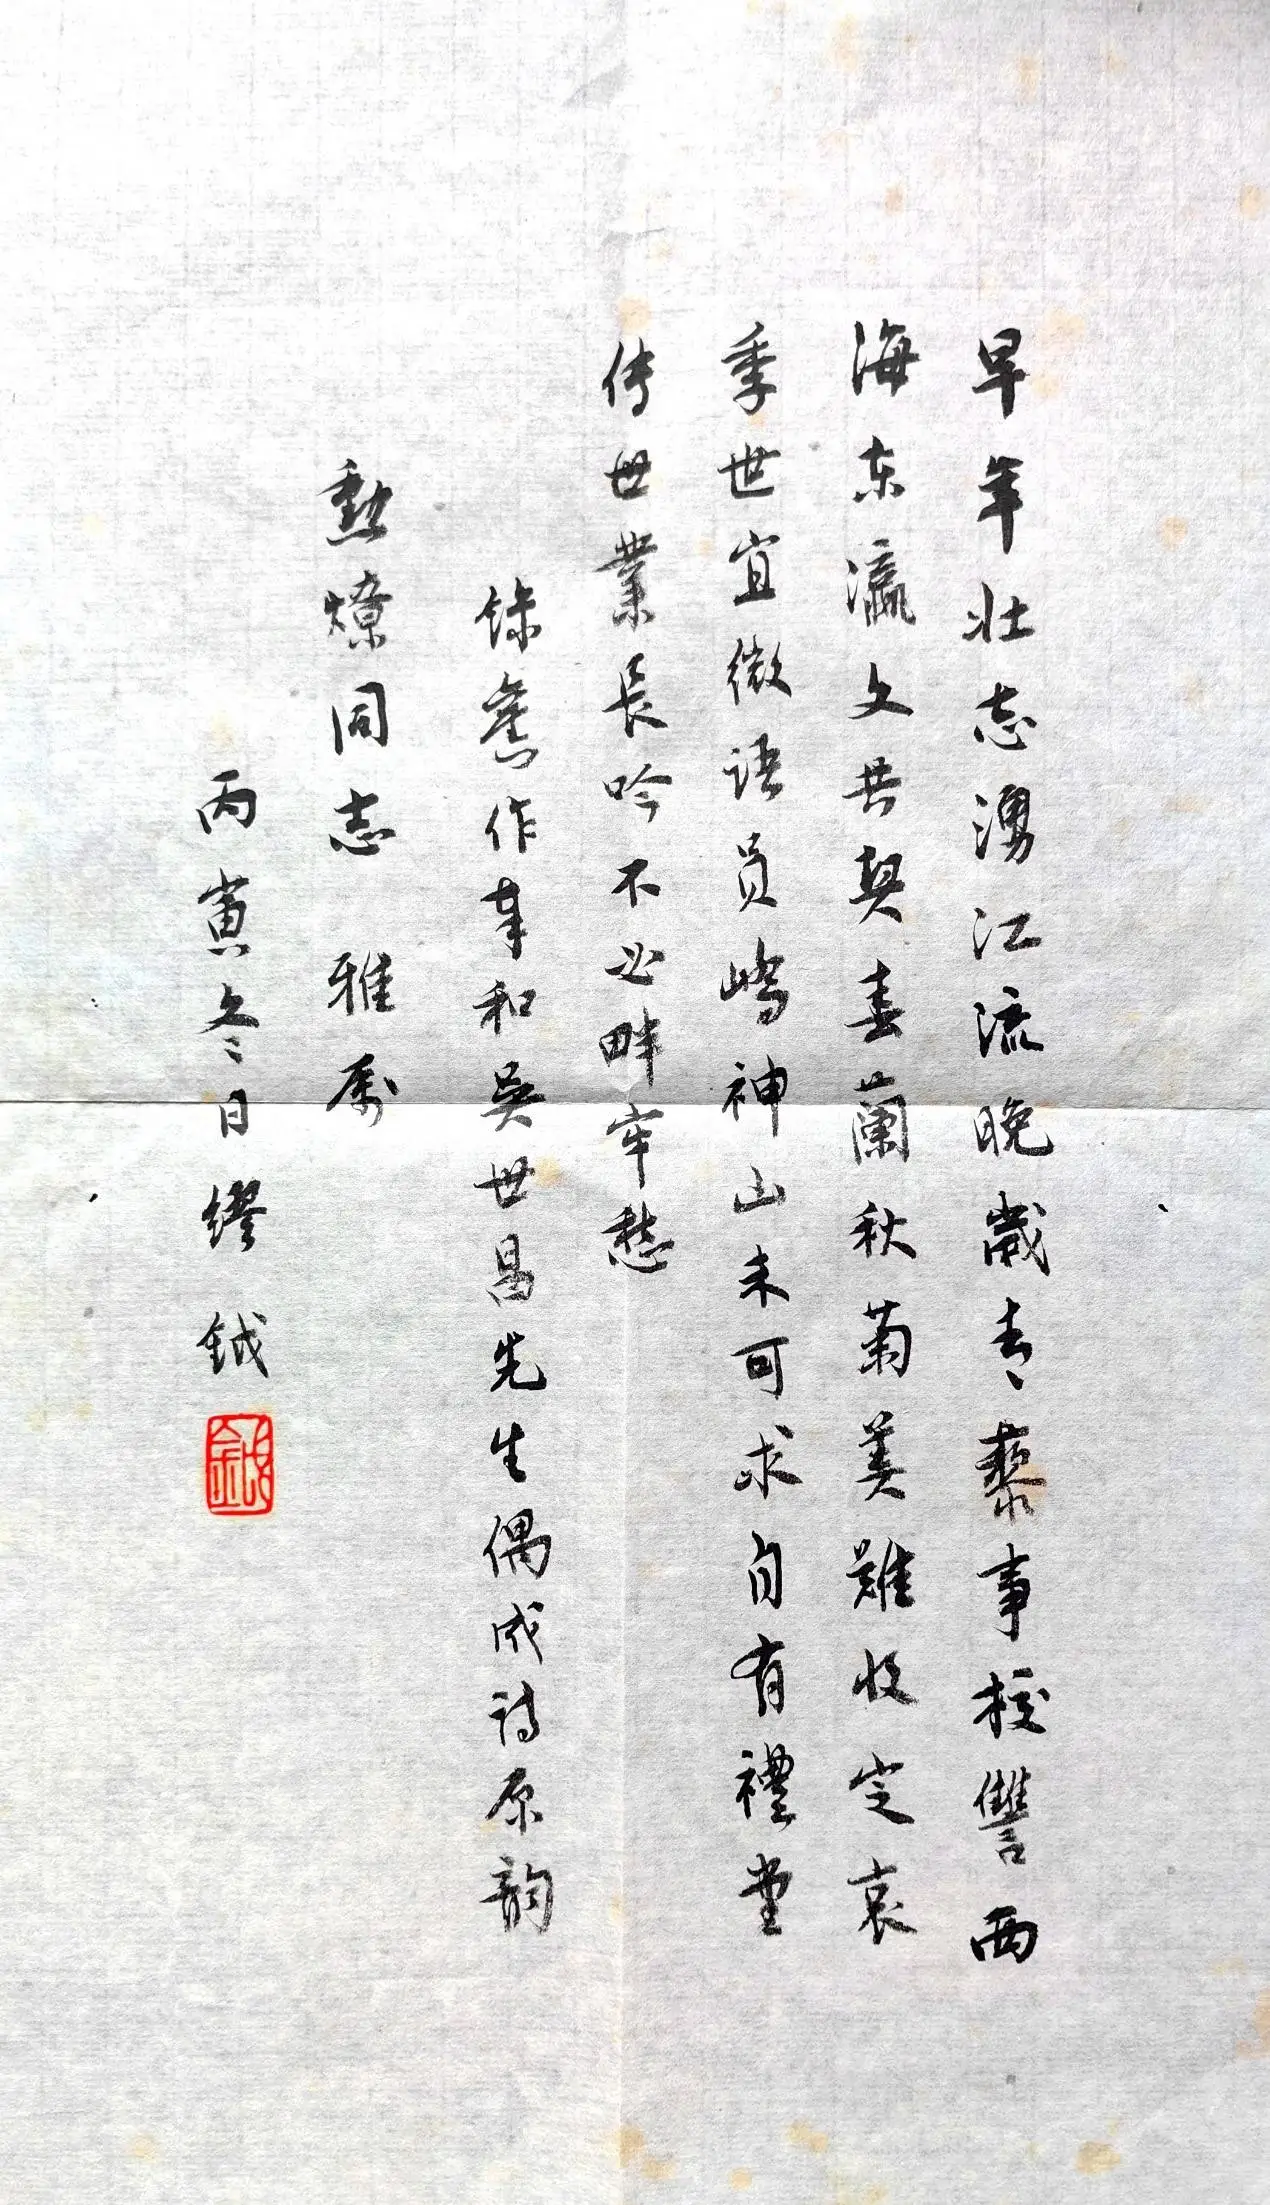 早年壮志湧江流晚歲青藜事校讐西
海东瀛文共契春蘭秋菊美難收定哀
季世宜微语员嶠神山未可求自有禮堂
传世業長吟不必畔牢愁
錄舊作奉和吴世昌先生偶成诗原韵
勳燎同志 雅属
丙寅冬日缪鉞
鉞